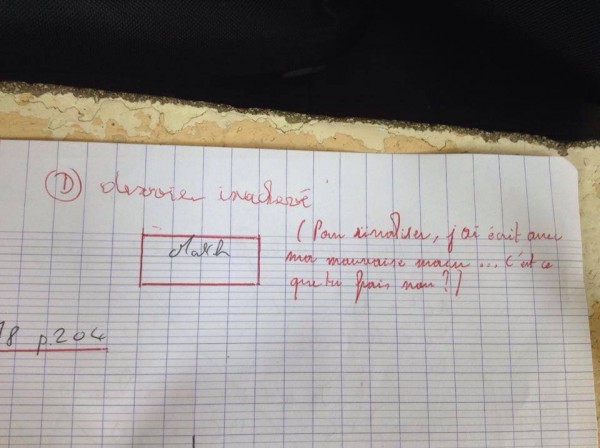 ① devoir inachevé
(Pour rivaliser, j'ai écrit avec
Math
ma mauvaise main ... c'est ce
que tu fais non ?)
18 p.204